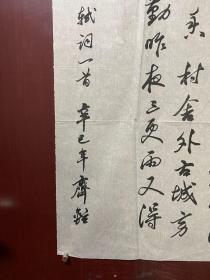 香村舍外古城旁
勤昨夜三更雨又得
轼词一首 辛巳年 齊